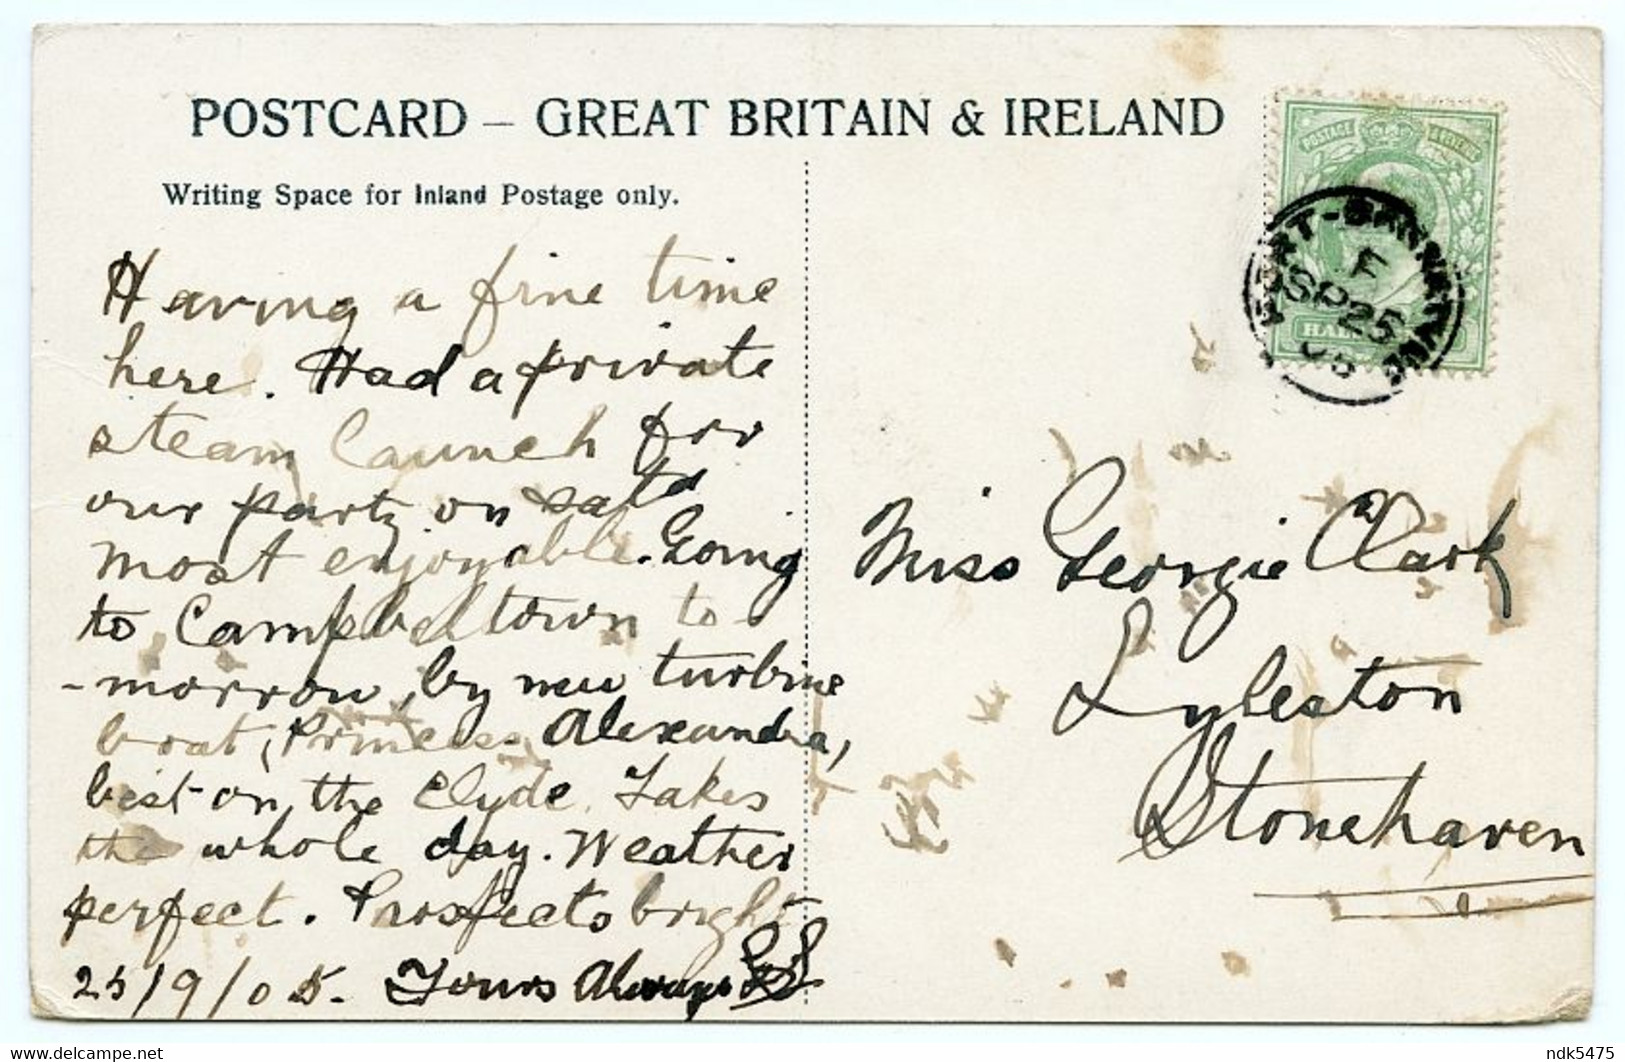 POSTCARD – GREAT BRITAIN & IRELAND
Writing Space for Inland Postage only.
Having a fine time
here. Had a private
steam launch for
our party on Satd
most enjoyable. Going
to Campbeltown to-
-morrow, by new turbine
boat, Princess Alexandra,
best on the Clyde. Takes
the whole day. Weather
perfect. Prospects bright
25/9/05. Yours Always
POSTAGE & REVENUE
HAL
PORT-BANNATYNE
F
SP 25
05
Miss Georgie Clark
Lyleston
Stonehaven
delcampe.net
ndk5475